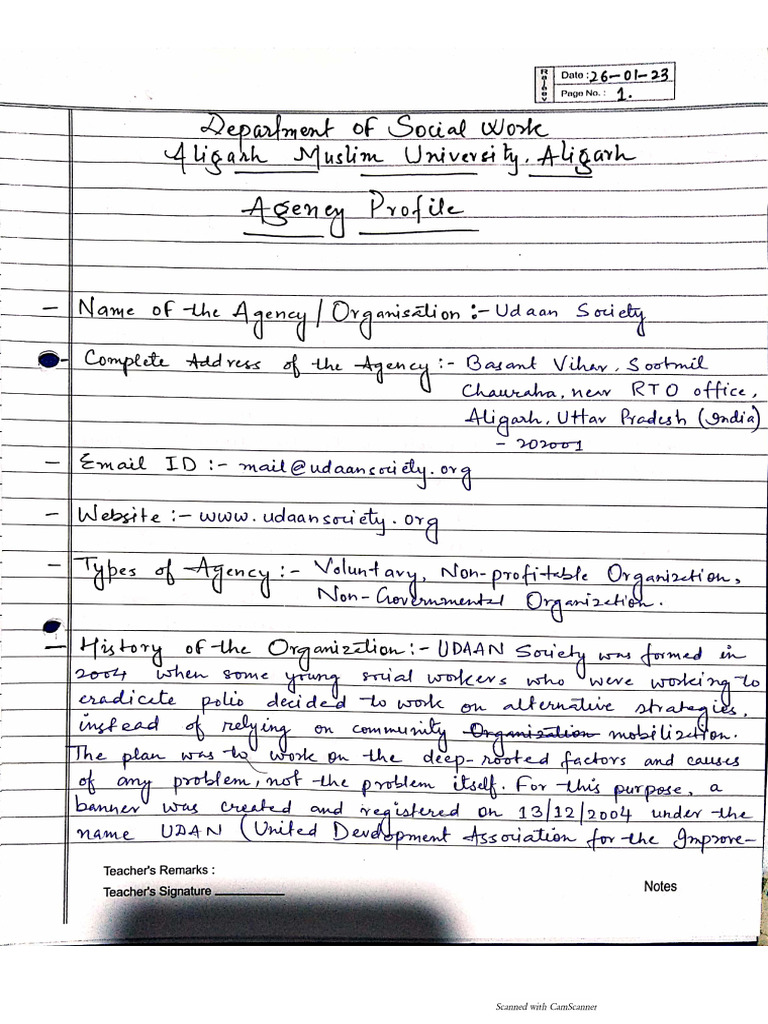 Date : 26-01-23
Page No. : 1.
Department of Social Work
Aligarh Muslim University, Aligarh
Agency Profile
- Name of the Agency / Organisation :- Udaan Society
- Complete Address of the Agency :- Basant Vihar, Sootmil
Chauraha, near RTO office,
Aligarh, Uttar Pradesh (India)
- 202001
- Email ID :- mail@udaansociety.org
- Website :- www.udaansociety.org
- Types of Agency :- Voluntary, Non-profitable Organization,
Non-Governmental Organization.
- History of the Organization :- UDAAN Society was formed in
2004 when some young social workers who were working to
eradicate polio decided to work on alternative strategies,
instead of relying on community Organisation mobilization.
The plan was to work on the deep-rooted factors and causes
of any problem, not the problem itself. For this purpose, a
banner was created and registered on 13/12/2004 under the
name UDAN (United Development Association for the Improve-
Teacher's Remarks :
Teacher's Signature
Notes
Scanned with CamScanner